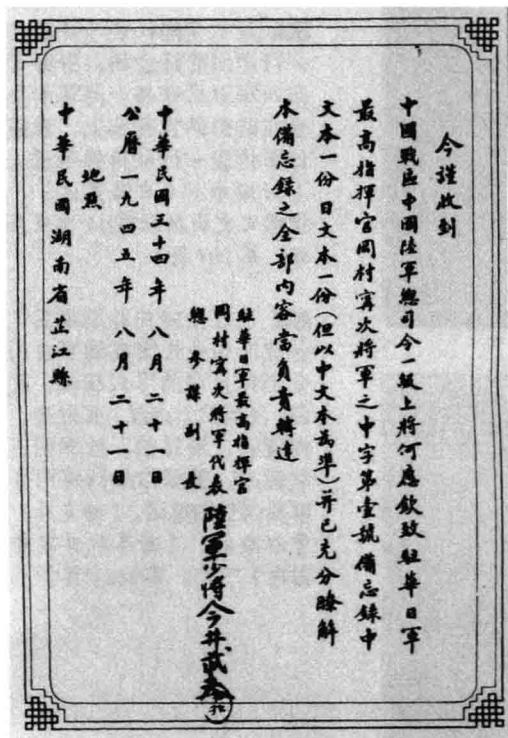 今謹收到
中國戰區中國陸軍總司令一級上將何應欽致駐華日軍
最高指揮官岡村寧次將軍之中字第壹號備忘錄中
文本一份日文本一份(但以中文本為準)并已充分瞭解
本備忘錄之全部內容當負責轉達
駐華日軍最高指揮官
岡村寧次將軍代表
總參謀副長
陸軍少將今井武夫
中華民國三十四年八月二十一日
公曆一九四五年八月二十一日
地點
中華民國湖南省芷江縣